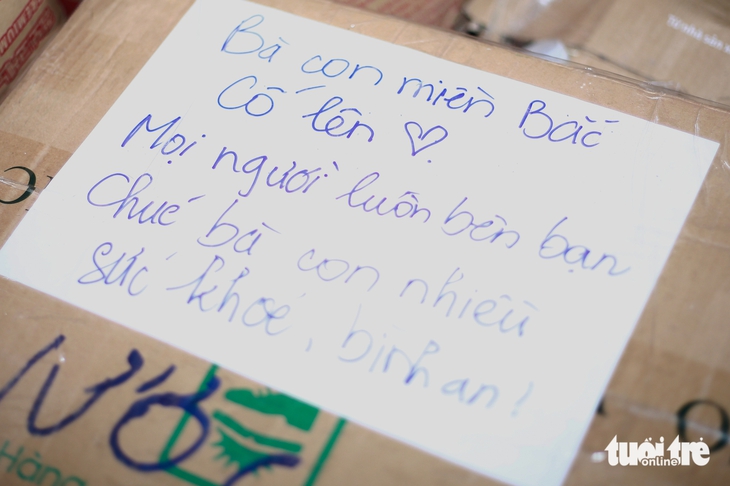 Bà con miền Bắc
Cố lên ♡.
Mọi người luôn bên bạn
Chúc bà con nhiều
sức khỏe, bình an!
Hàng
tuổi trẻ
online